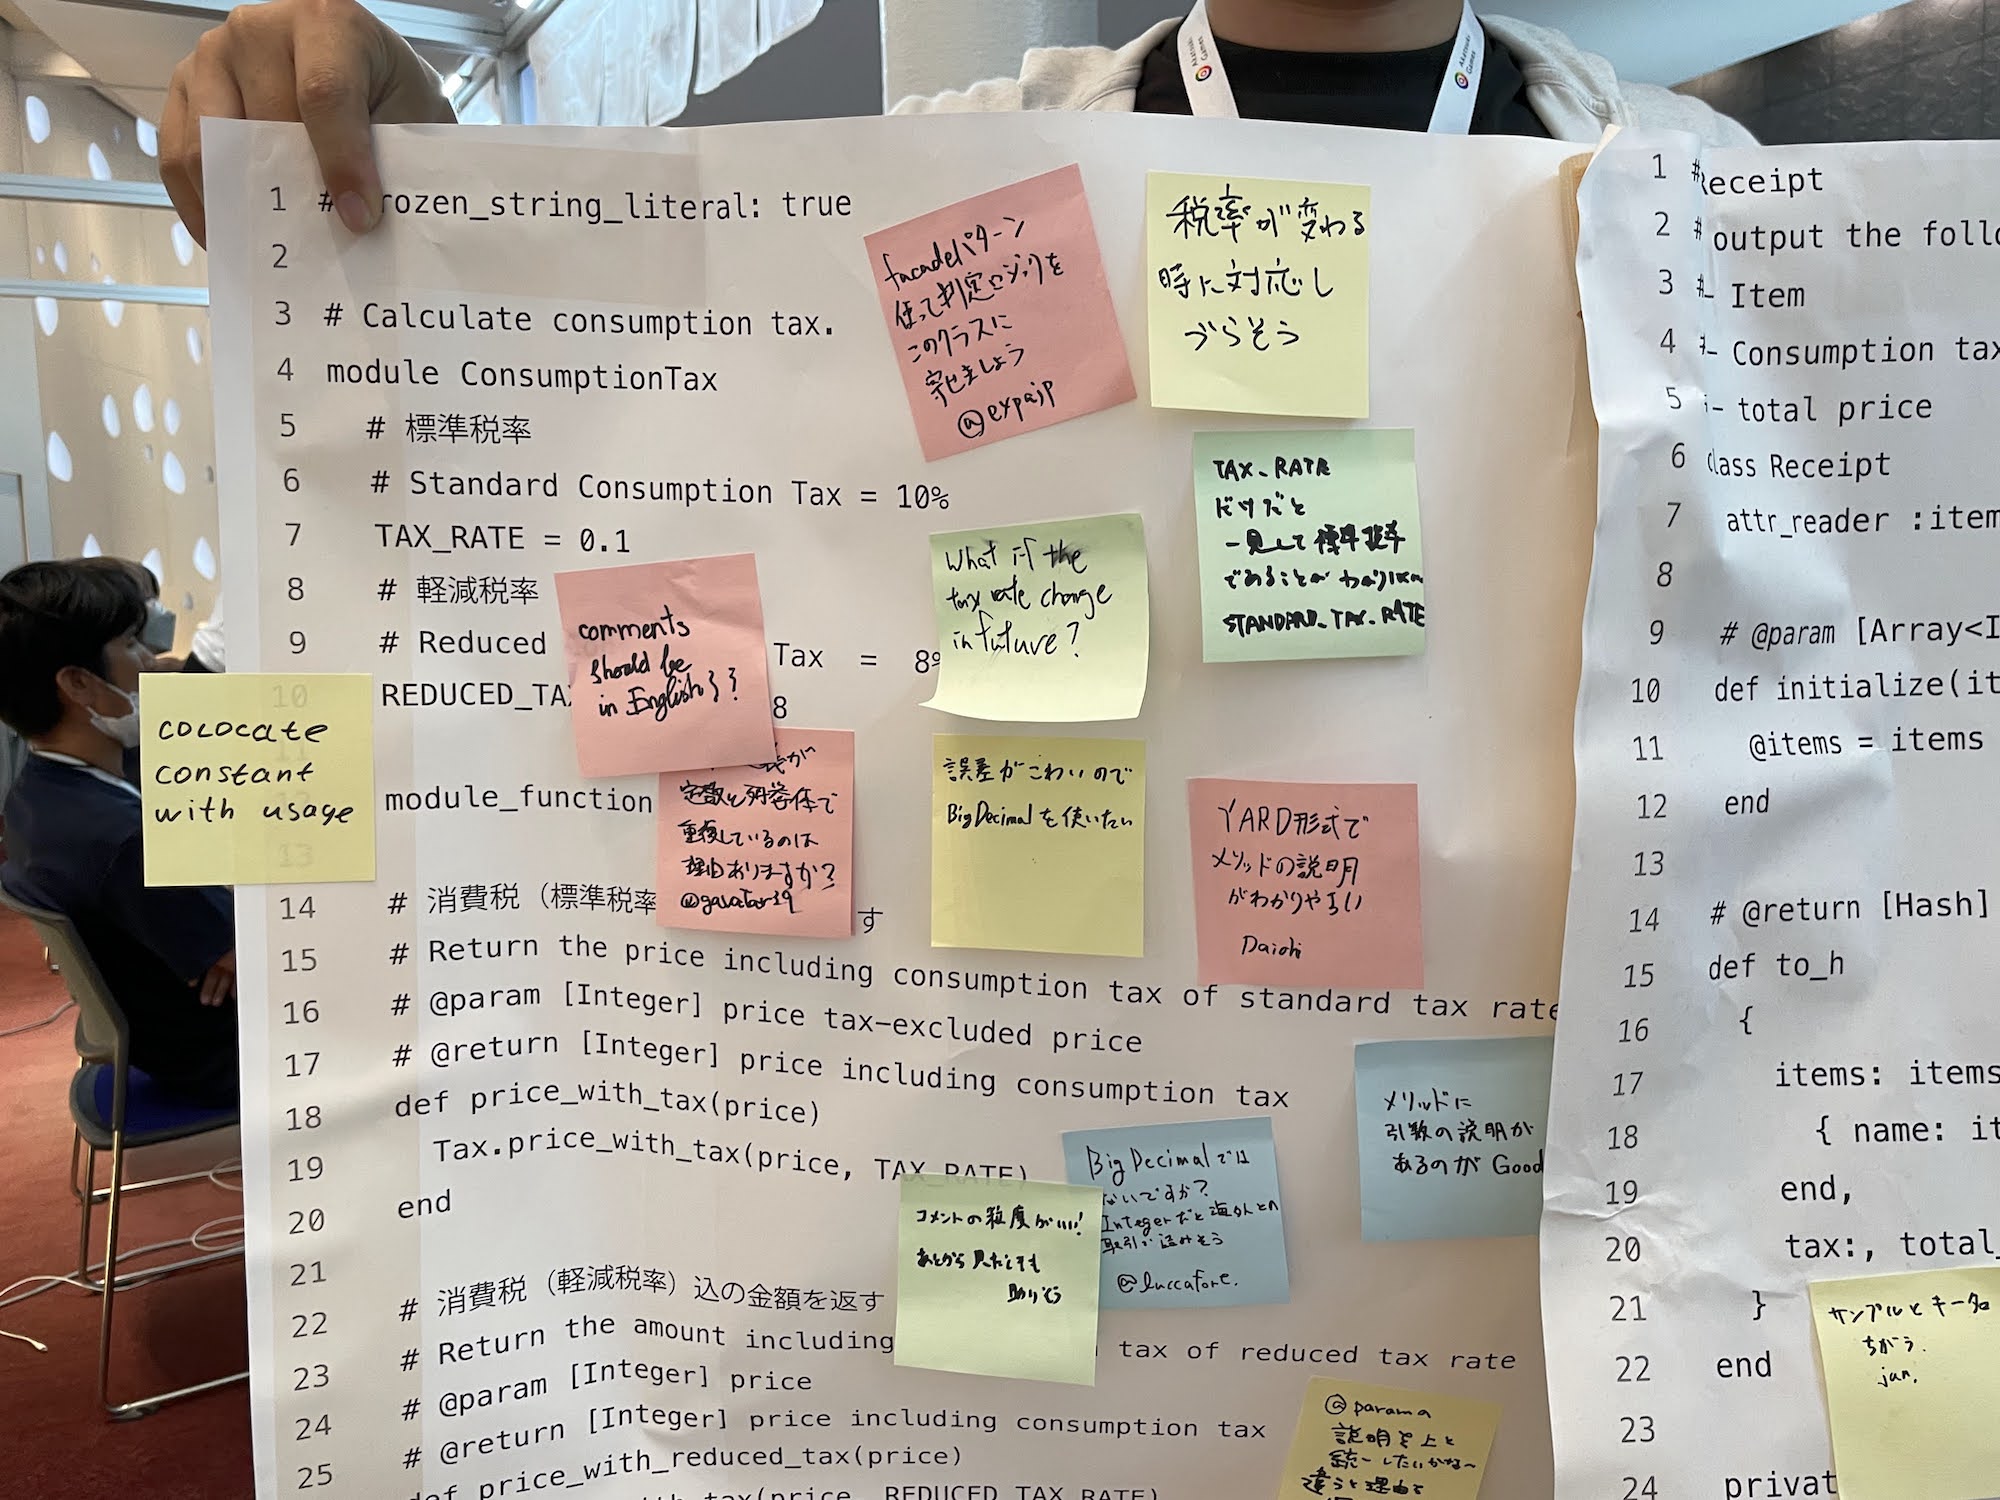 Akatsuki
Games
Akatsuki
Games
1 # frozen_string_literal: true
2
3 # Calculate consumption tax.
4 module ConsumptionTax
5 # 標準税率
6 # Standard Consumption Tax = 10%
7 TAX_RATE = 0.1
8 # 軽減税率
9 # Reduced Tax = 8%
10 REDUCED_TAX 8
11
12 module_function
13
14 # 消費税（標準税率 す
15 # Return the price including consumption tax of standard tax rate
16 # @param [Integer] price tax-excluded price
17 # @return [Integer] price including consumption tax
18 def price_with_tax(price)
19 Tax.price_with_tax(price, TAX_RATE)
20 end
21
22 # 消費税（軽減税率）込の金額を返す
23 # Return the amount including tax of reduced tax rate
24 # @param [Integer] price
25 # @return [Integer] price including consumption tax
def price_with_reduced_tax(price)
with_tax(price, REDUCED_TAX_RATE)
facadeパターン
使って判定ロジックを
このクラスに
寄せましょう
@expajp
税率が変わる
時に対応し
づらそう
TAX_RATE
だけだと
一見して標準税率
であることがわかりにくい
STANDARD_TAX_RATE
What if the
tax rate change
in future?
comments
should be
in English??
colocate
constant
with usage
が
定数と列挙体で
重複しているのは
理由ありますか?
@gavatar39
誤差がこわいので
BigDecimalを使いたい
YARD形式で
メソッドの説明
がわかりやすい
Daichi
メソッドに
引数の説明が
あるのが Good
BigDecimalでは
ないですか?
Integerだと海外との
取引で
@luccafort.
コメントの粒度がいい!
あとから見たしても
助かる
@paramの
説明を上と
統一したいかな〜
違うと理由を
1 # Receipt
2 # output the follo
3 #- Item
4 #- Consumption tax
5 #- total price
6 class Receipt
7 attr_reader :item
8
9 # @param [Array<I
10 def initialize(it
11 @items = items
12 end
13
14 # @return [Hash]
15 def to_h
16 {
17 items: items
18 { name: it
19 end,
20 tax:, total_
21 }
22 end
23
24 privat
サンプルとキー名
ちがう.
jan.